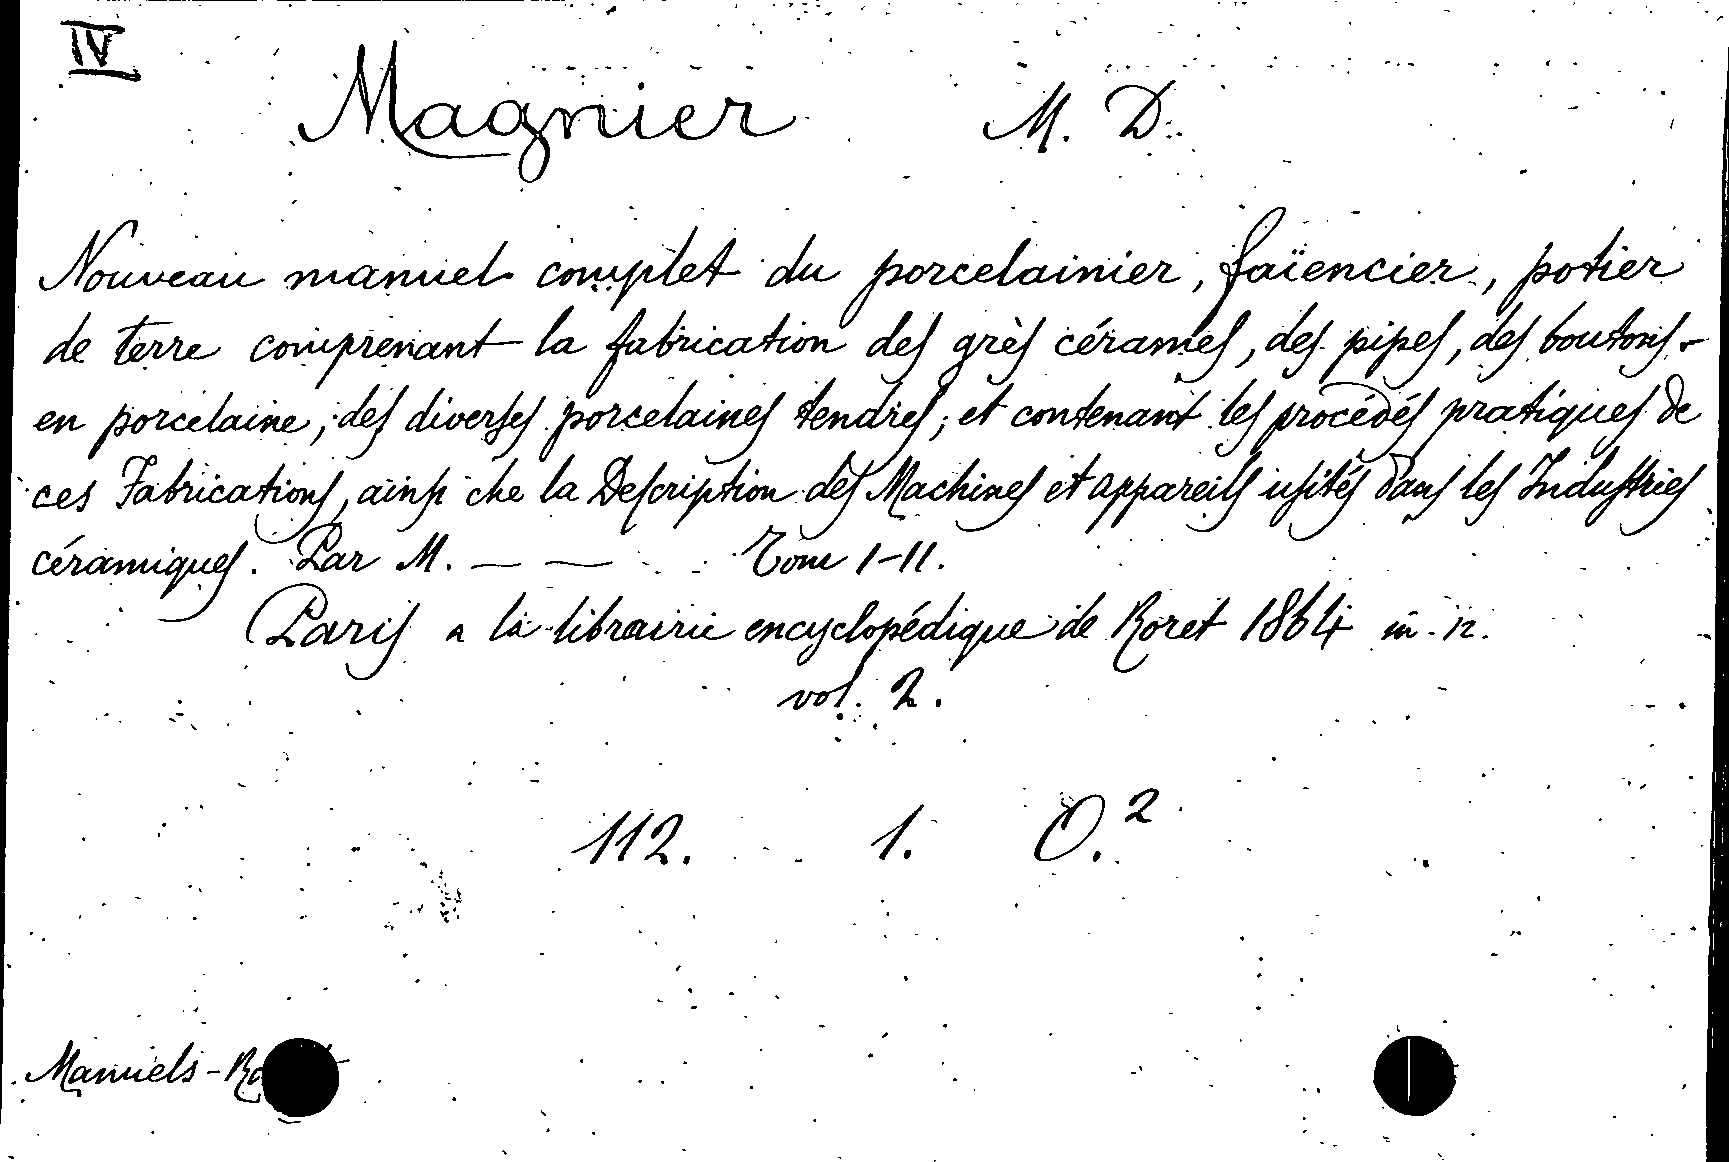 IV
Magnier M. D.
Nouveau manuel complet du porcelainier, faïencier, potier
de terre comprenant la fabrication des grès cérames, des pipes, des boutons
en porcelaine, des diverses porcelaines tendres; et contenant les procédés pratiques de
ces Fabrications, ainsi che la Description des Machines et appareils usités dans les Industries
céramiques. Par M. — — Tome I-II.
Paris a la librairie encyclopédique de Roret 1864 in 12.
vol. 2.
112. 1. O.²
Manuels-